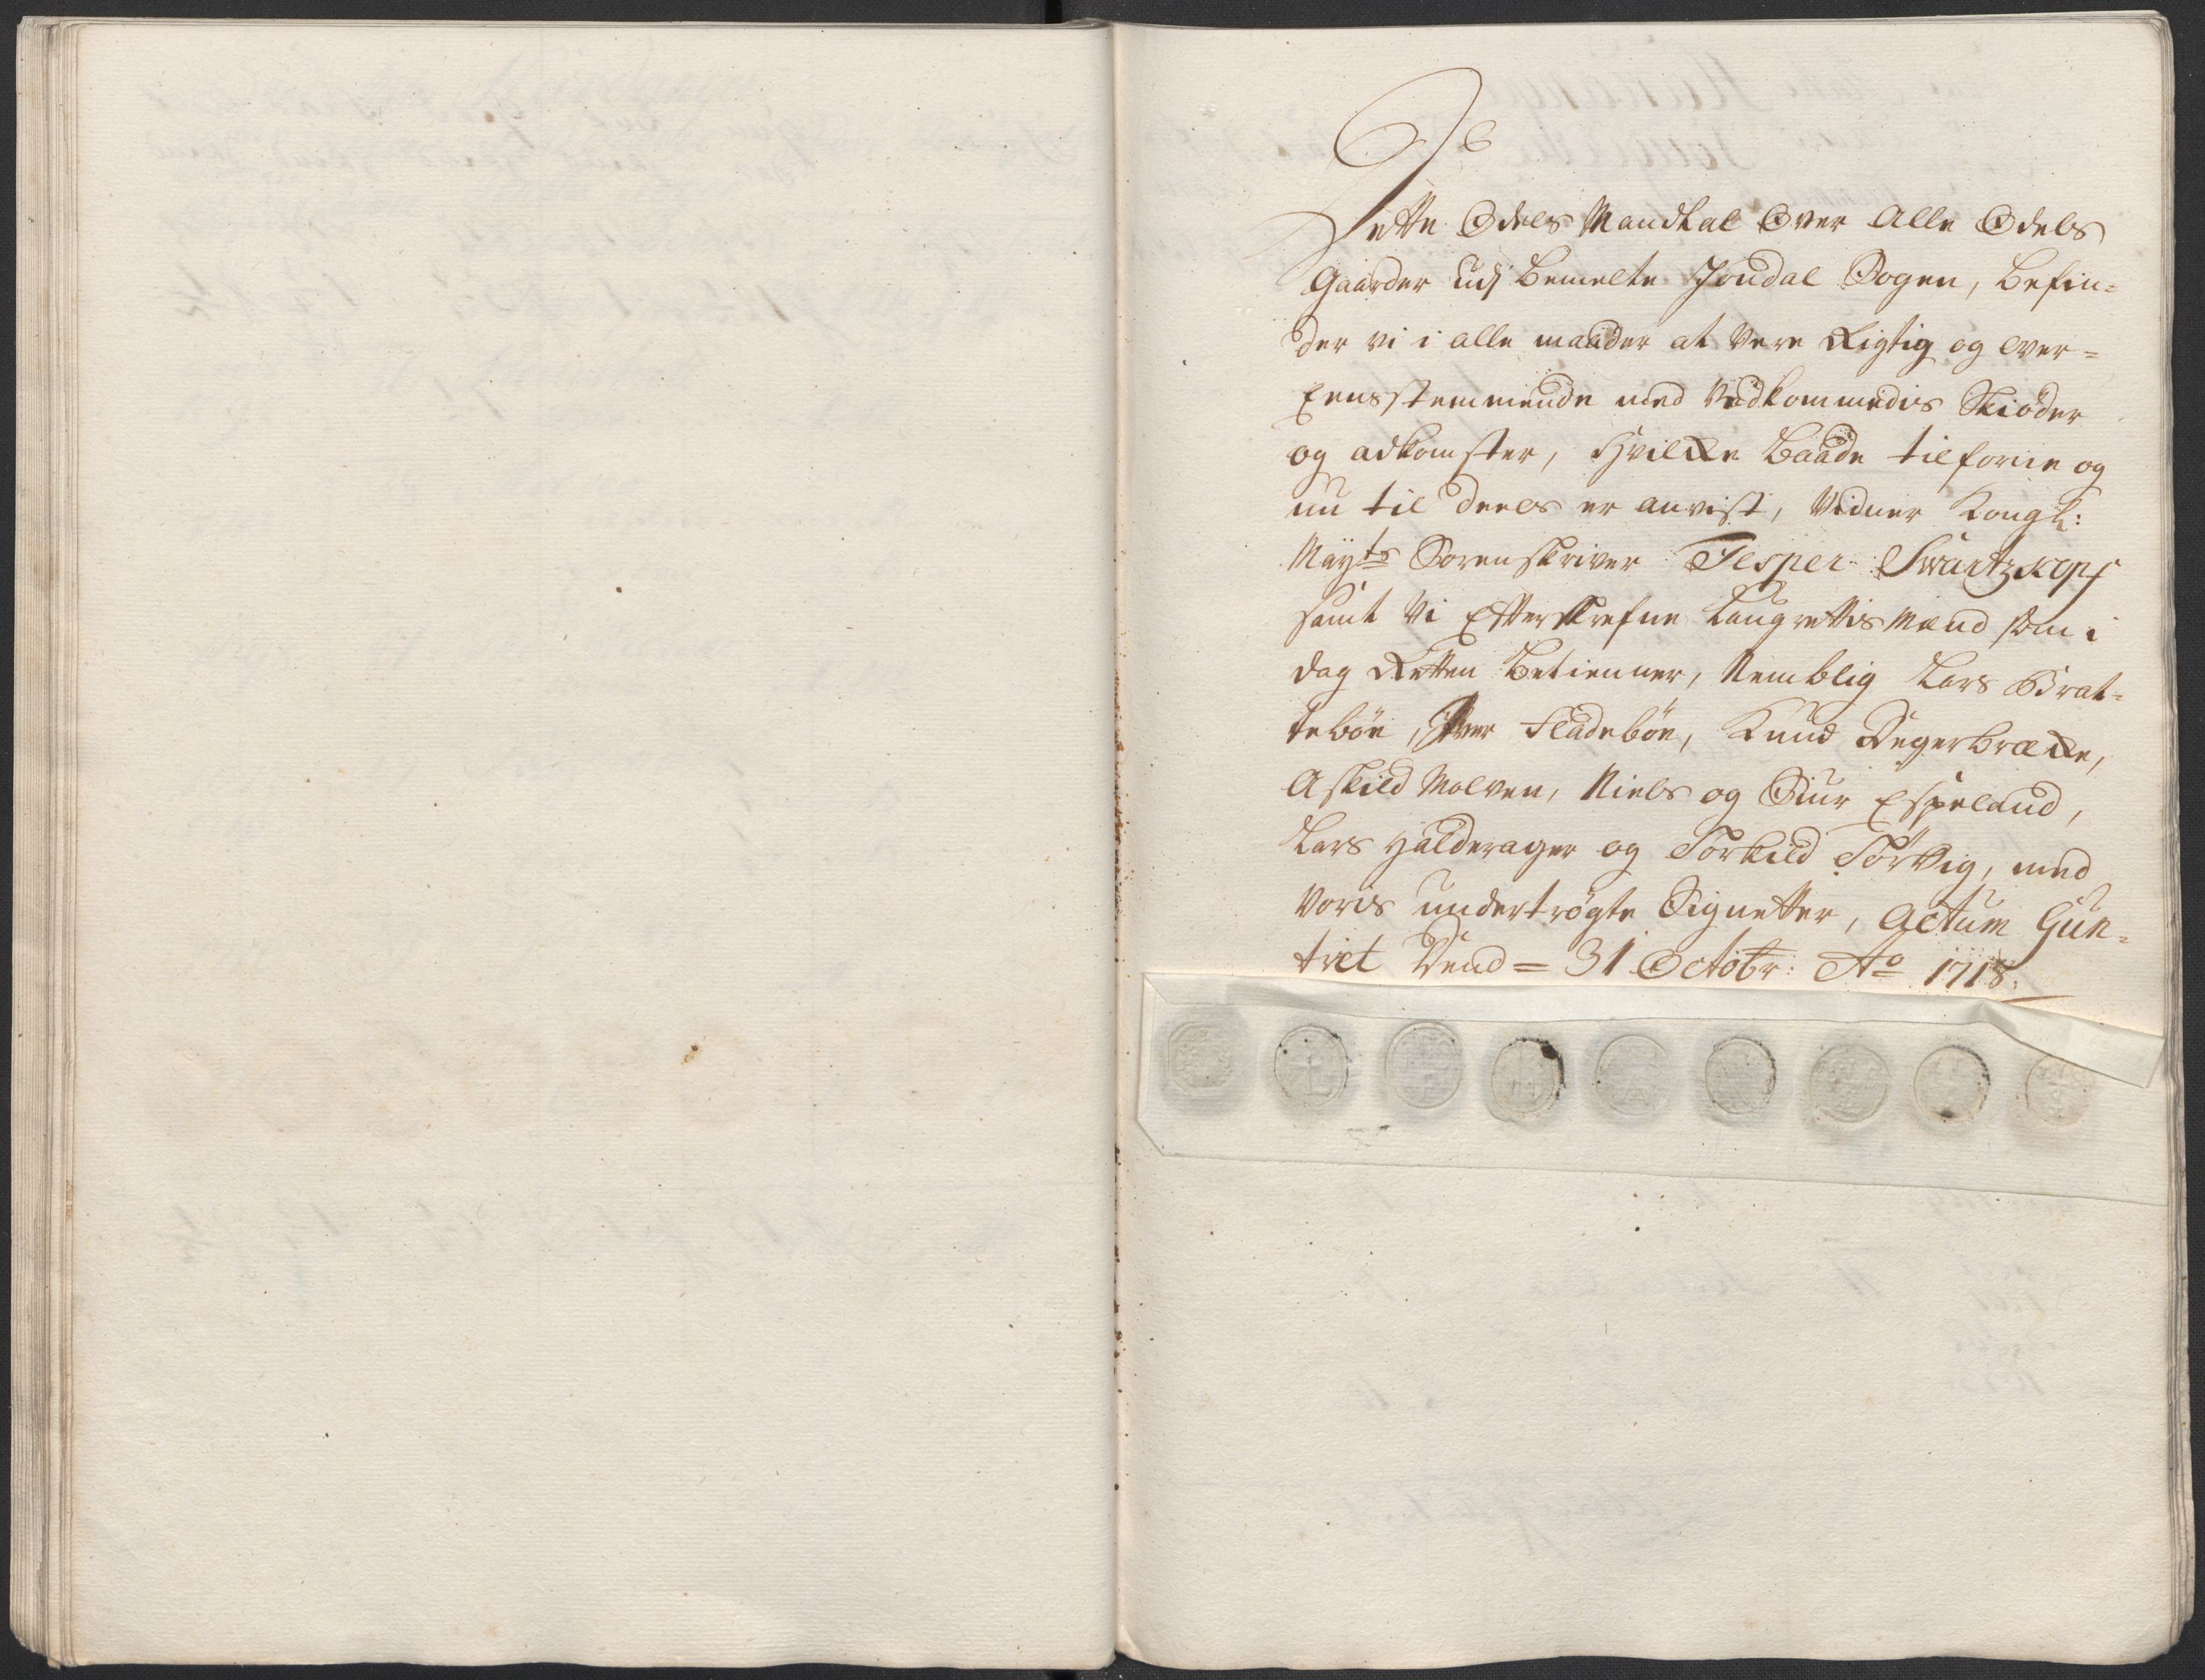 Dette Odels Mandtal Over Alle Odels
Gaarder udj bemelte Jondal Sogen, befin-
der vi i alle maader at være Rigtig og over-
Eensstemmende med Vedkommedis Skiøder
og adkomster, Hvilke baade tilforne og
nu til deels er anvist, Vidner Kongl:
Mayts Sorenskriver Jesper Swartzkopf
samt Vi Efterskrefne Laugrettis Mænd som i
dag Retten betienner, Nemblig Lars Brat-
tebøe, Iver Fladebøe, Knud Degerbrække,
Askild Molven, Niels og Siur Espeland,
Lars Halderager og Torkild Tørvig, med
Voris undertrøgte Signetter, Actum Gun-
tvet Dend = 31 Octobr: Ao 1718.